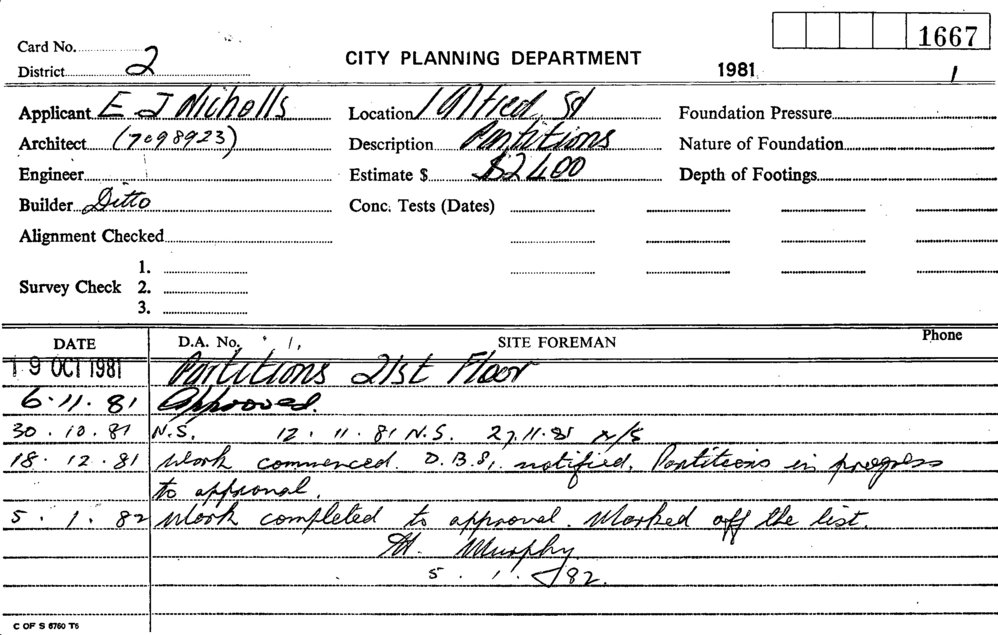 1667
Card No.
CITY PLANNING DEPARTMENT
District 2
1981
1
Applicant E J Nicholls
Location 1 Alfred St
Foundation Pressure
Architect (7098923)
Description Partitions
Nature of Foundation
Engineer
Estimate $ $2400
Depth of Footings
Builder Ditto
Conc. Tests (Dates)
Alignment Checked
1.
Survey Check 2.
3.
DATE D.A. No. SITE FOREMAN Phone
19 OCT 1981 Partitions 21st Floor
6.11.81 Approved.
30.10.81 N.S. 12.11.81 N.S. 27.11.81 N/S
18.12.81 Work commenced. D.B.S. notified. Partitions in progress
to approval.
5.1.82 Work completed to approval. Marked off the list.
Murphy
5.1.82.
C OF S 6760 T6